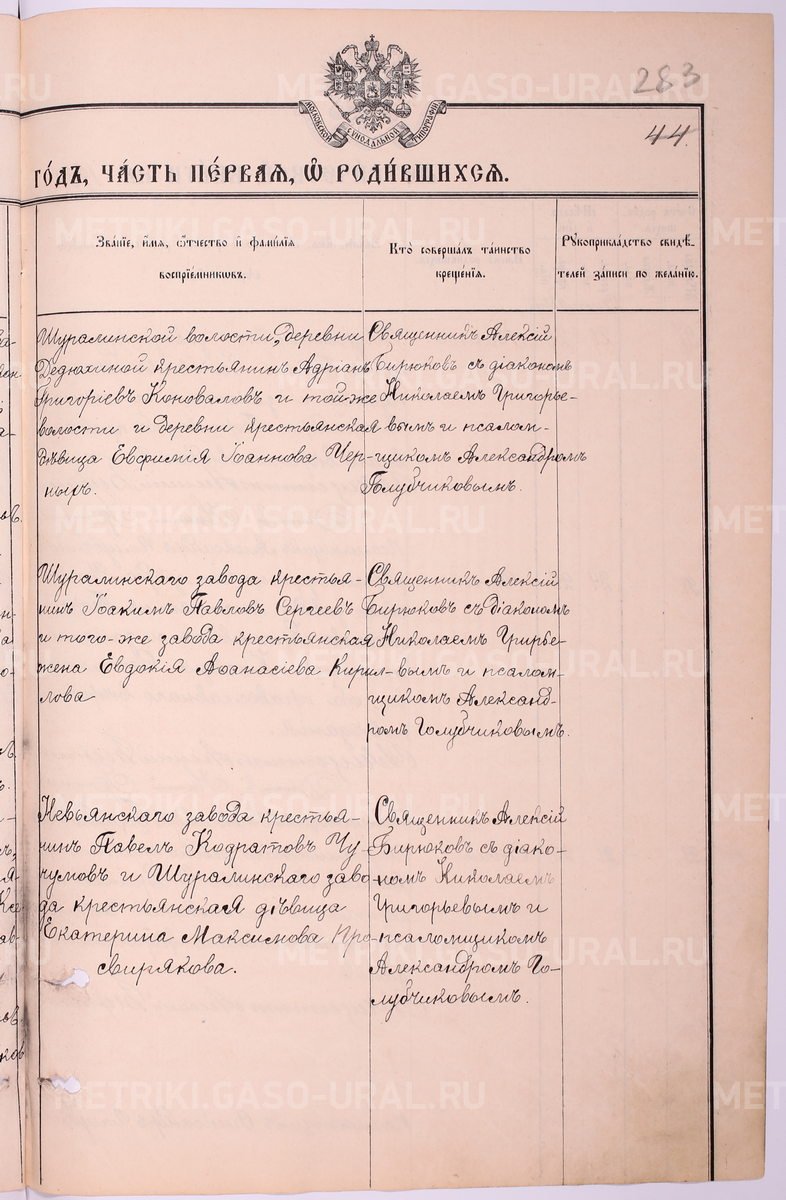 283
МОСКОВСКОЙ СУНОДАЛЬНОЙ ТИПОГРАФІИ
44.
го́дъ, ча́сть пе́рваѧ, ѡ҆ роди́вшихсѧ.
Зва́нїе, и҆́мѧ, ѻ҆́тчество и҆ фами́лїѧ
воспрїе́мниковъ.
Кто̀ соверша́лъ та́инство
креще́нїѧ.
Рꙋкоприкла́дство свидѣ́-
телей за́писи по жела́нїю.
Шуралинской волости, деревни
Дедюхиной крестьянинъ Адріанъ
Григоріевъ Коноваловъ и той же
волости и деревни крестьянская
дѣвица Евфимія Іоаннова Чер-
ныхъ.
Священникъ Алексій
Бирюковъ съ діакономъ
Николаемъ Григорье-
вымъ и псалом-
щикомъ Александромъ
Голубчиковымъ.
Шуралинскаго завода крестья-
нинъ Іоакимъ Павловъ Сергеевъ
и того-же завода крестьянская
жена Евдокія Аѳанасіева Кирил-
лова
Священникъ Алексій
Бирюковъ съ діакономъ
Николаемъ Грирье-
вымъ и псалом-
щикомъ Александ-
ромъ Голубчиковымъ.
Невьянскаго завода крестья-
нинъ Павелъ Кодратовъ Чу-
чумовъ и Шуралинскаго заво-
да крестьянская дѣвица
Екатерина Максимова Про-
свирякова.
Священникъ Алексій
Бирюковъ съ діако-
номъ Николаемъ
Григорьевымъ и
псаломщикомъ
Александромъ Го-
лубчиковымъ.
METRIKI.GASO-URAL.RU